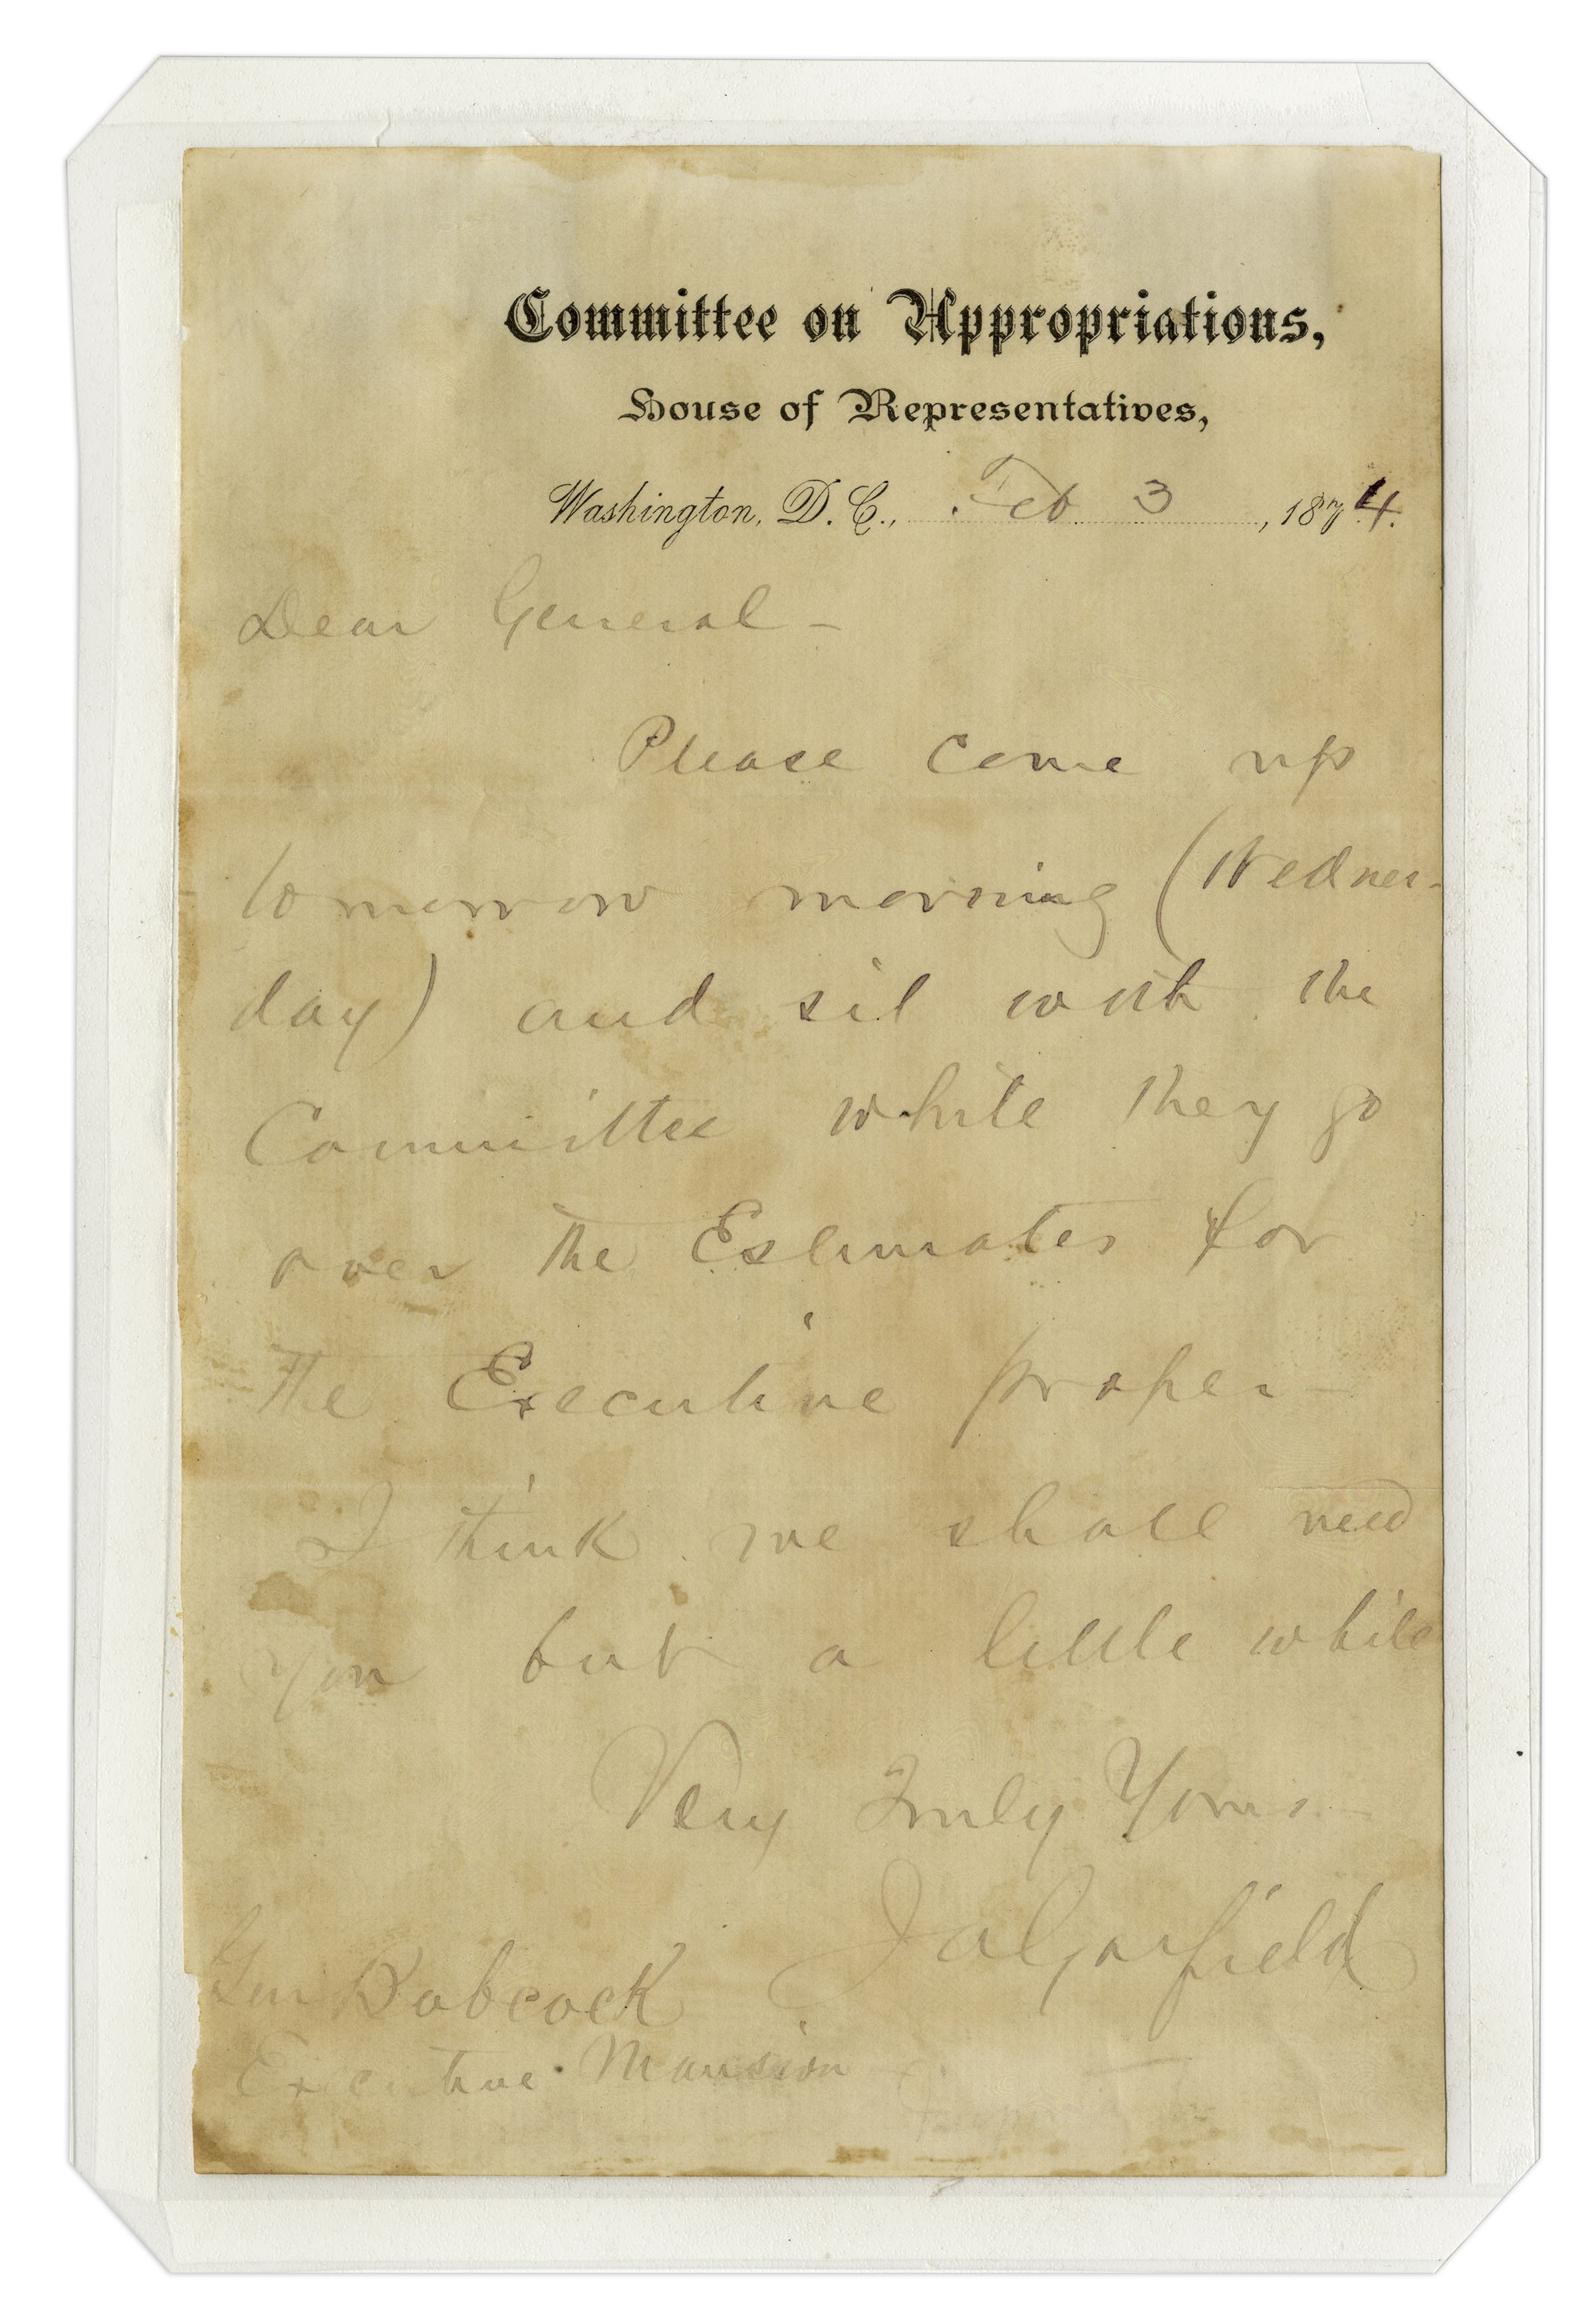 Committee on Appropriations,
House of Representatives,
Washington, D.C., Feb 3, 1874.
Dear General –
Please come up
tomorrow morning (Wednes-
day) and sit with the
Committee while they go
over the Estimates for
the Executive proper –
I think we shall need
you but a little while
Very Truly Yours
J A Garfield
Gen Babcock
Executive Mansion